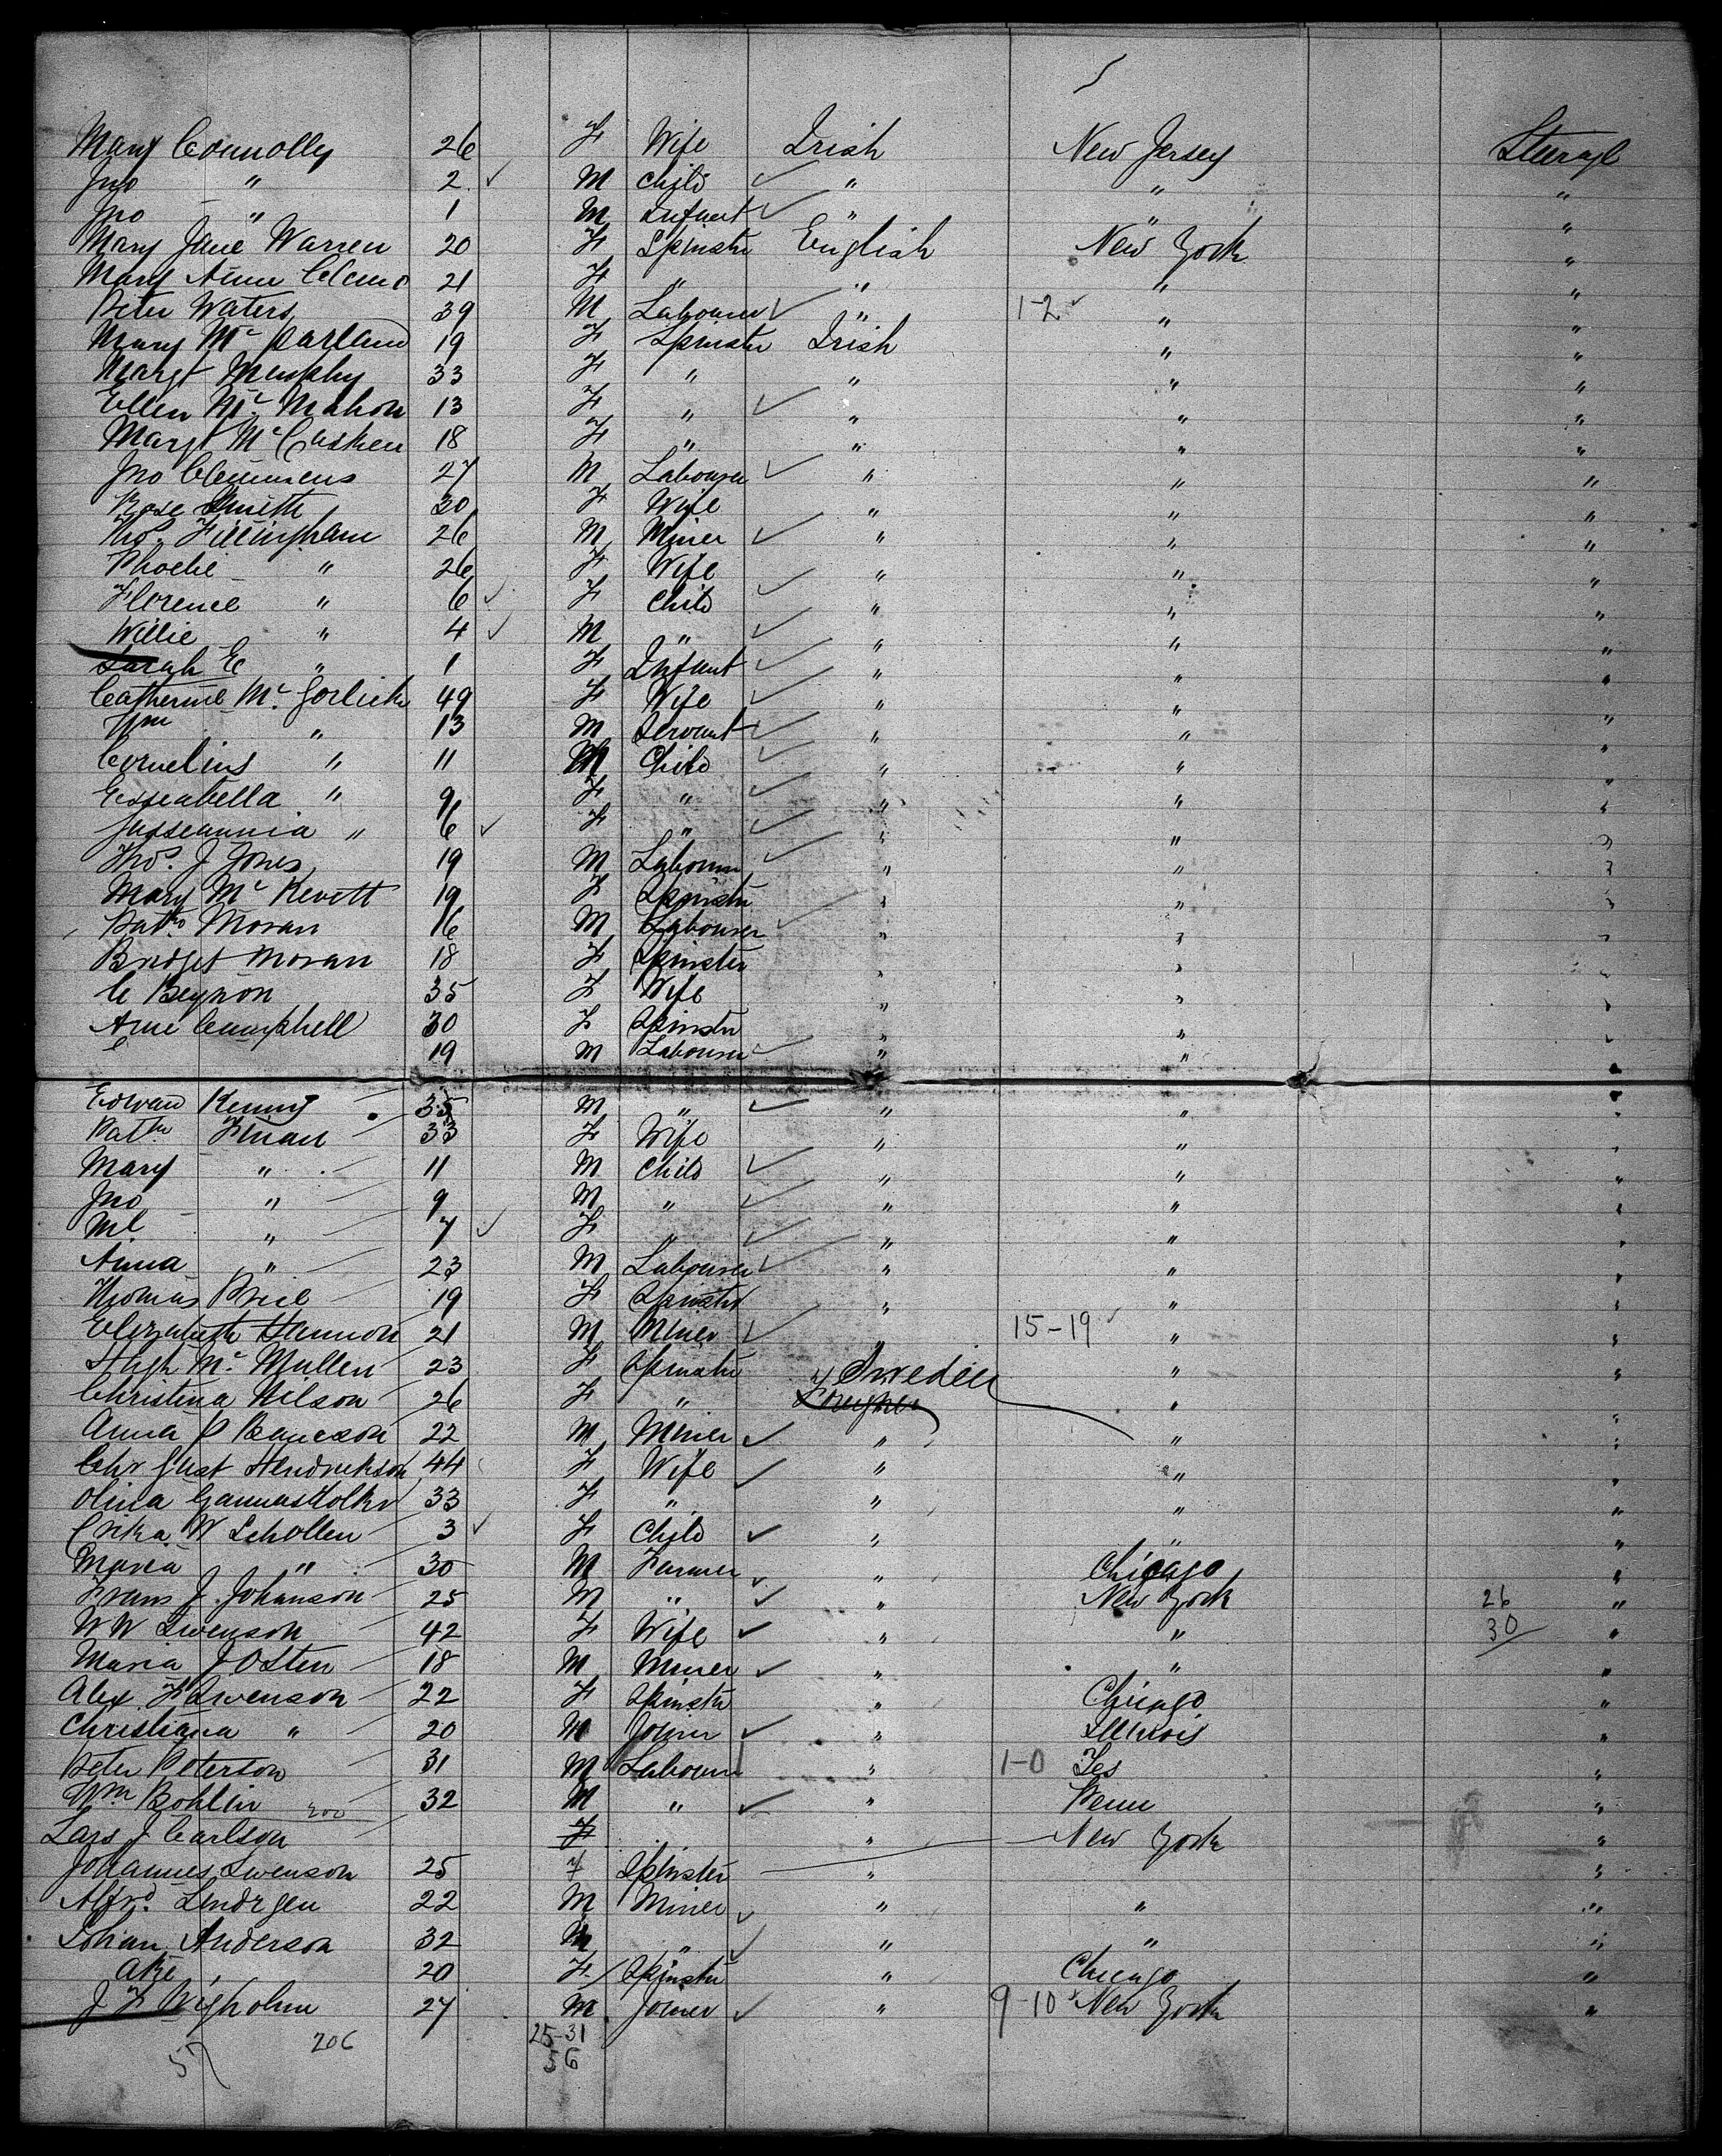 Mary Connolly 26 F Wife Irish New Jersey Steerage
Jno " 2 ✓ M Child ✓ " " "
Jno " 1 M Infant ✓ " " "
Mary Jane Warren 20 F Spinster English New York "
Mary Anne 21 F " " " "
Peter Waters 39 M Labourer ✓ " 1-2 ✓ " "
Mary Mc Partland 19 F Spinster Irish " "
Margt Murphy 33 F " " " "
Ellen Mc Mahon 13 F " ✓ " " "
Margt Mc Cusken 18 F " " " "
Jno Clemmens 27 M Labourer ✓ " " "
Rose Smith 30 F Wife " " "
Thos. Fillingham 26 M Miner ✓ " " "
Phoebe " 26 F Wife " " "
Florence " 6 ✓ F Child ✓ " " "
Willie " 4 ✓ M " ✓ " " "
Sarah E " 1 F Infant ✓ " " "
Catherine Mc. 49 F Wife ✓ " " "
Wm " 13 M Servant ✓ " " "
Cornelius " 11 M Child ✓ " " "
Esseabella " 9 F " ✓ " " "
Jusseannia " 6 ✓ F " ✓ " " "
Thos. J Jones 19 M Labourer ✓ " " "
Mary Mc Kevitt 19 F Spinster " " "
Patk Moran 16 M Labourer ✓ " " "
Bridget Moran 18 F Spinster " " "
C Beynon 35 F Wife " " "
Ane Campbell 30 F Spinster " " "
19 M Labourer ✓ " " "
Edward Kenny 35 M " ✓ " " "
Patk Finan 33 F Wife " " "
Mary " 11 M Child ✓ " " "
Jno " 9 M " ✓ " " "
Ml " 7 ✓ F " ✓ " " "
Anna " 23 M Labourer ✓ " " "
Thomas Price 19 F Spinster " " "
Elizabeth Hannon 21 M Miner ✓ " 15-19 ✓ " "
Hugh Mc. Mullen 23 F Spinster Sweden " "
Christina Nilson 26 F " Foreigner " "
Anna P 22 M Miner ✓ " " "
Chr Gust Hendrickson 44 F Wife ✓ " " "
Olina 33 F " " " "
Erika W Schollen 3 ✓ F Child ✓ " " "
Maria " 30 M Farmer ✓ " Chicago "
Frans J. Johanson 25 M " ✓ " New York 26 "
W W Swenson 42 F Wife ✓ " " 30 "
Maria J Osten 18 M Miner ✓ " " "
Alex F Swenson 22 F Spinster " Chicago "
Christiana " 20 M Joiner ✓ " Illinois "
Peter Peterson 31 M Labourer ✓ " 1-0 "
Wm Bohlin 200 32 M " ✓ " Penn "
Lars J Carlson F " New York "
Johannes Swenson 25 F Spinster " "
Alfrd. Lindrgen 22 M Miner ✓ " " "
Johan Anderson 32 M " ✓ " " "
Ake 20 F Spinster " Chicago "
J F 27 M Joiner ✓ " 9-10 New York "
57 206 25-31
56